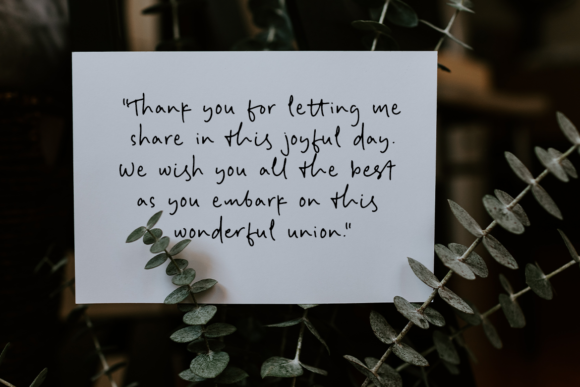 "Thank you for letting me
share in this joyful day.
We wish you all the best
as you embark on this
wonderful union."